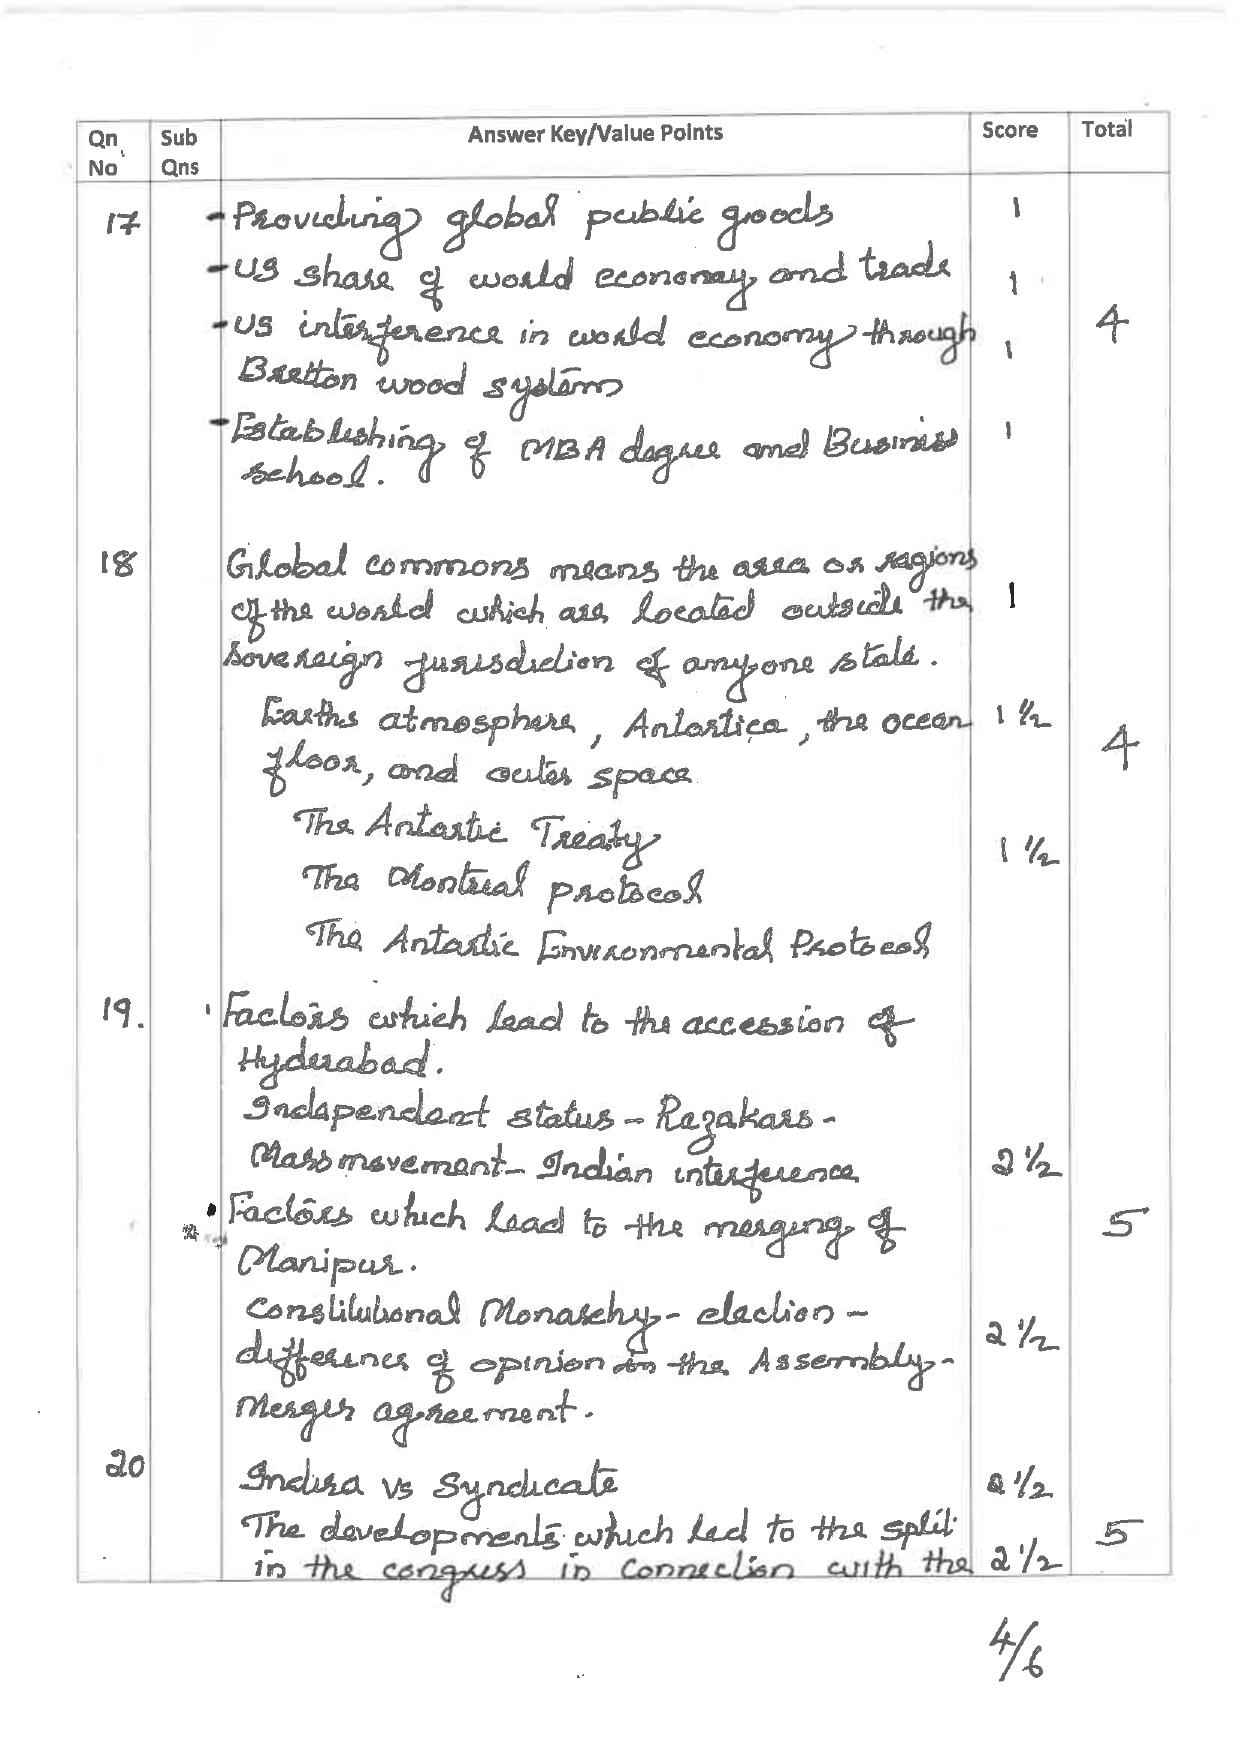 Qn No Sub Qns Answer Key/Value Points Score Total
17 - Providing global public goods 1
- US share of world economy and trade 1
- US interference in world economy through 1 4
Bretton wood system
- Establishing of MBA degree and Business 1
school.
18 Global commons means the area or regions
of the world which are located outside the 1
sovereign jurisdiction of anyone state.
Earths atmosphere, Antartica, the ocean 1 1/2
floor, and outer space 4
The Antartic Treaty
1 1/2
The Montreal protocol
The Antartic Environmental Protocol
19. Factors which lead to the accession of
Hyderabad.
Independent status - Razakars -
Mass movement - Indian interference 2 1/2
• Factors which lead to the merging of 5
Manipur.
Constitutional Monarchy - election -
difference of opinion in the Assembly - 2 1/2
Merger agreement.
20 Indira vs Syndicate 2 1/2
The developments which led to the split 5
in the congress in connection with the 2 1/2
4/6